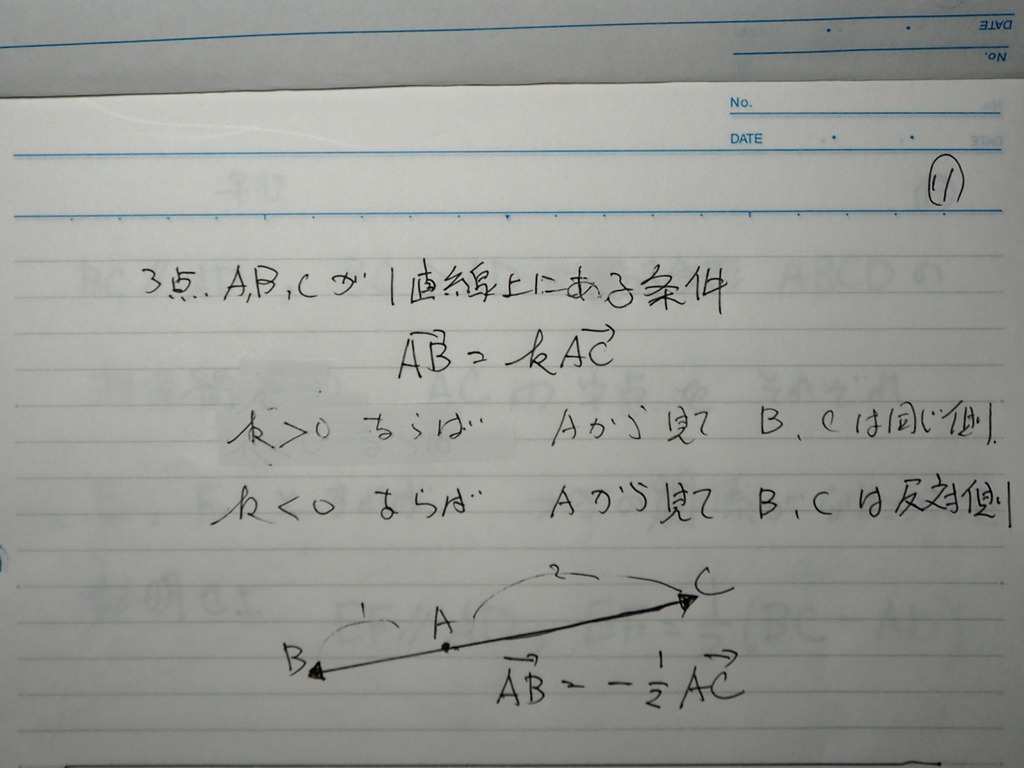 DATE
No.
No.
DATE
(11)
3点 A,B,Cが1直線上にある条件
$\overrightarrow{AB} = k\overrightarrow{AC}$
k>0 ならば Aから見て B、Cは同じ側
k<0 ならば Aから見て B、Cは反対側
2
C
1
A
B
$\overrightarrow{AB} = -\frac{1}{2}\overrightarrow{AC}$